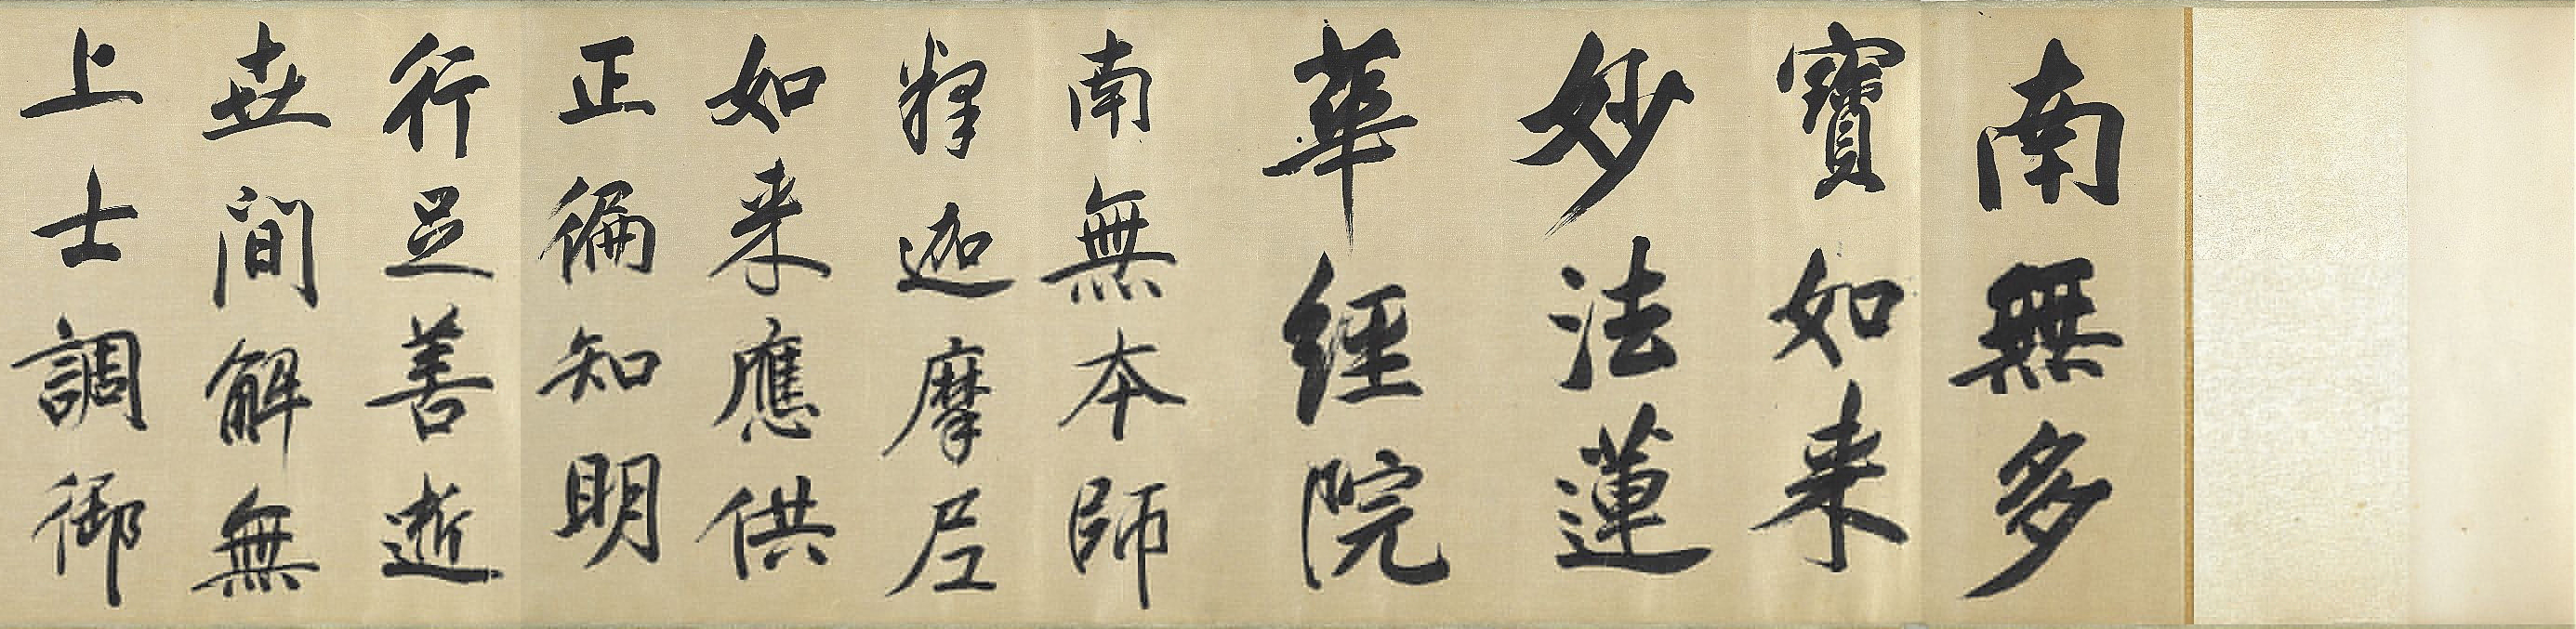 南無多
寶如来
妙法蓮
華經院
南無本師
釋迦摩尼
如来應供
正徧知明
行足善逝
世間解無
上士調御